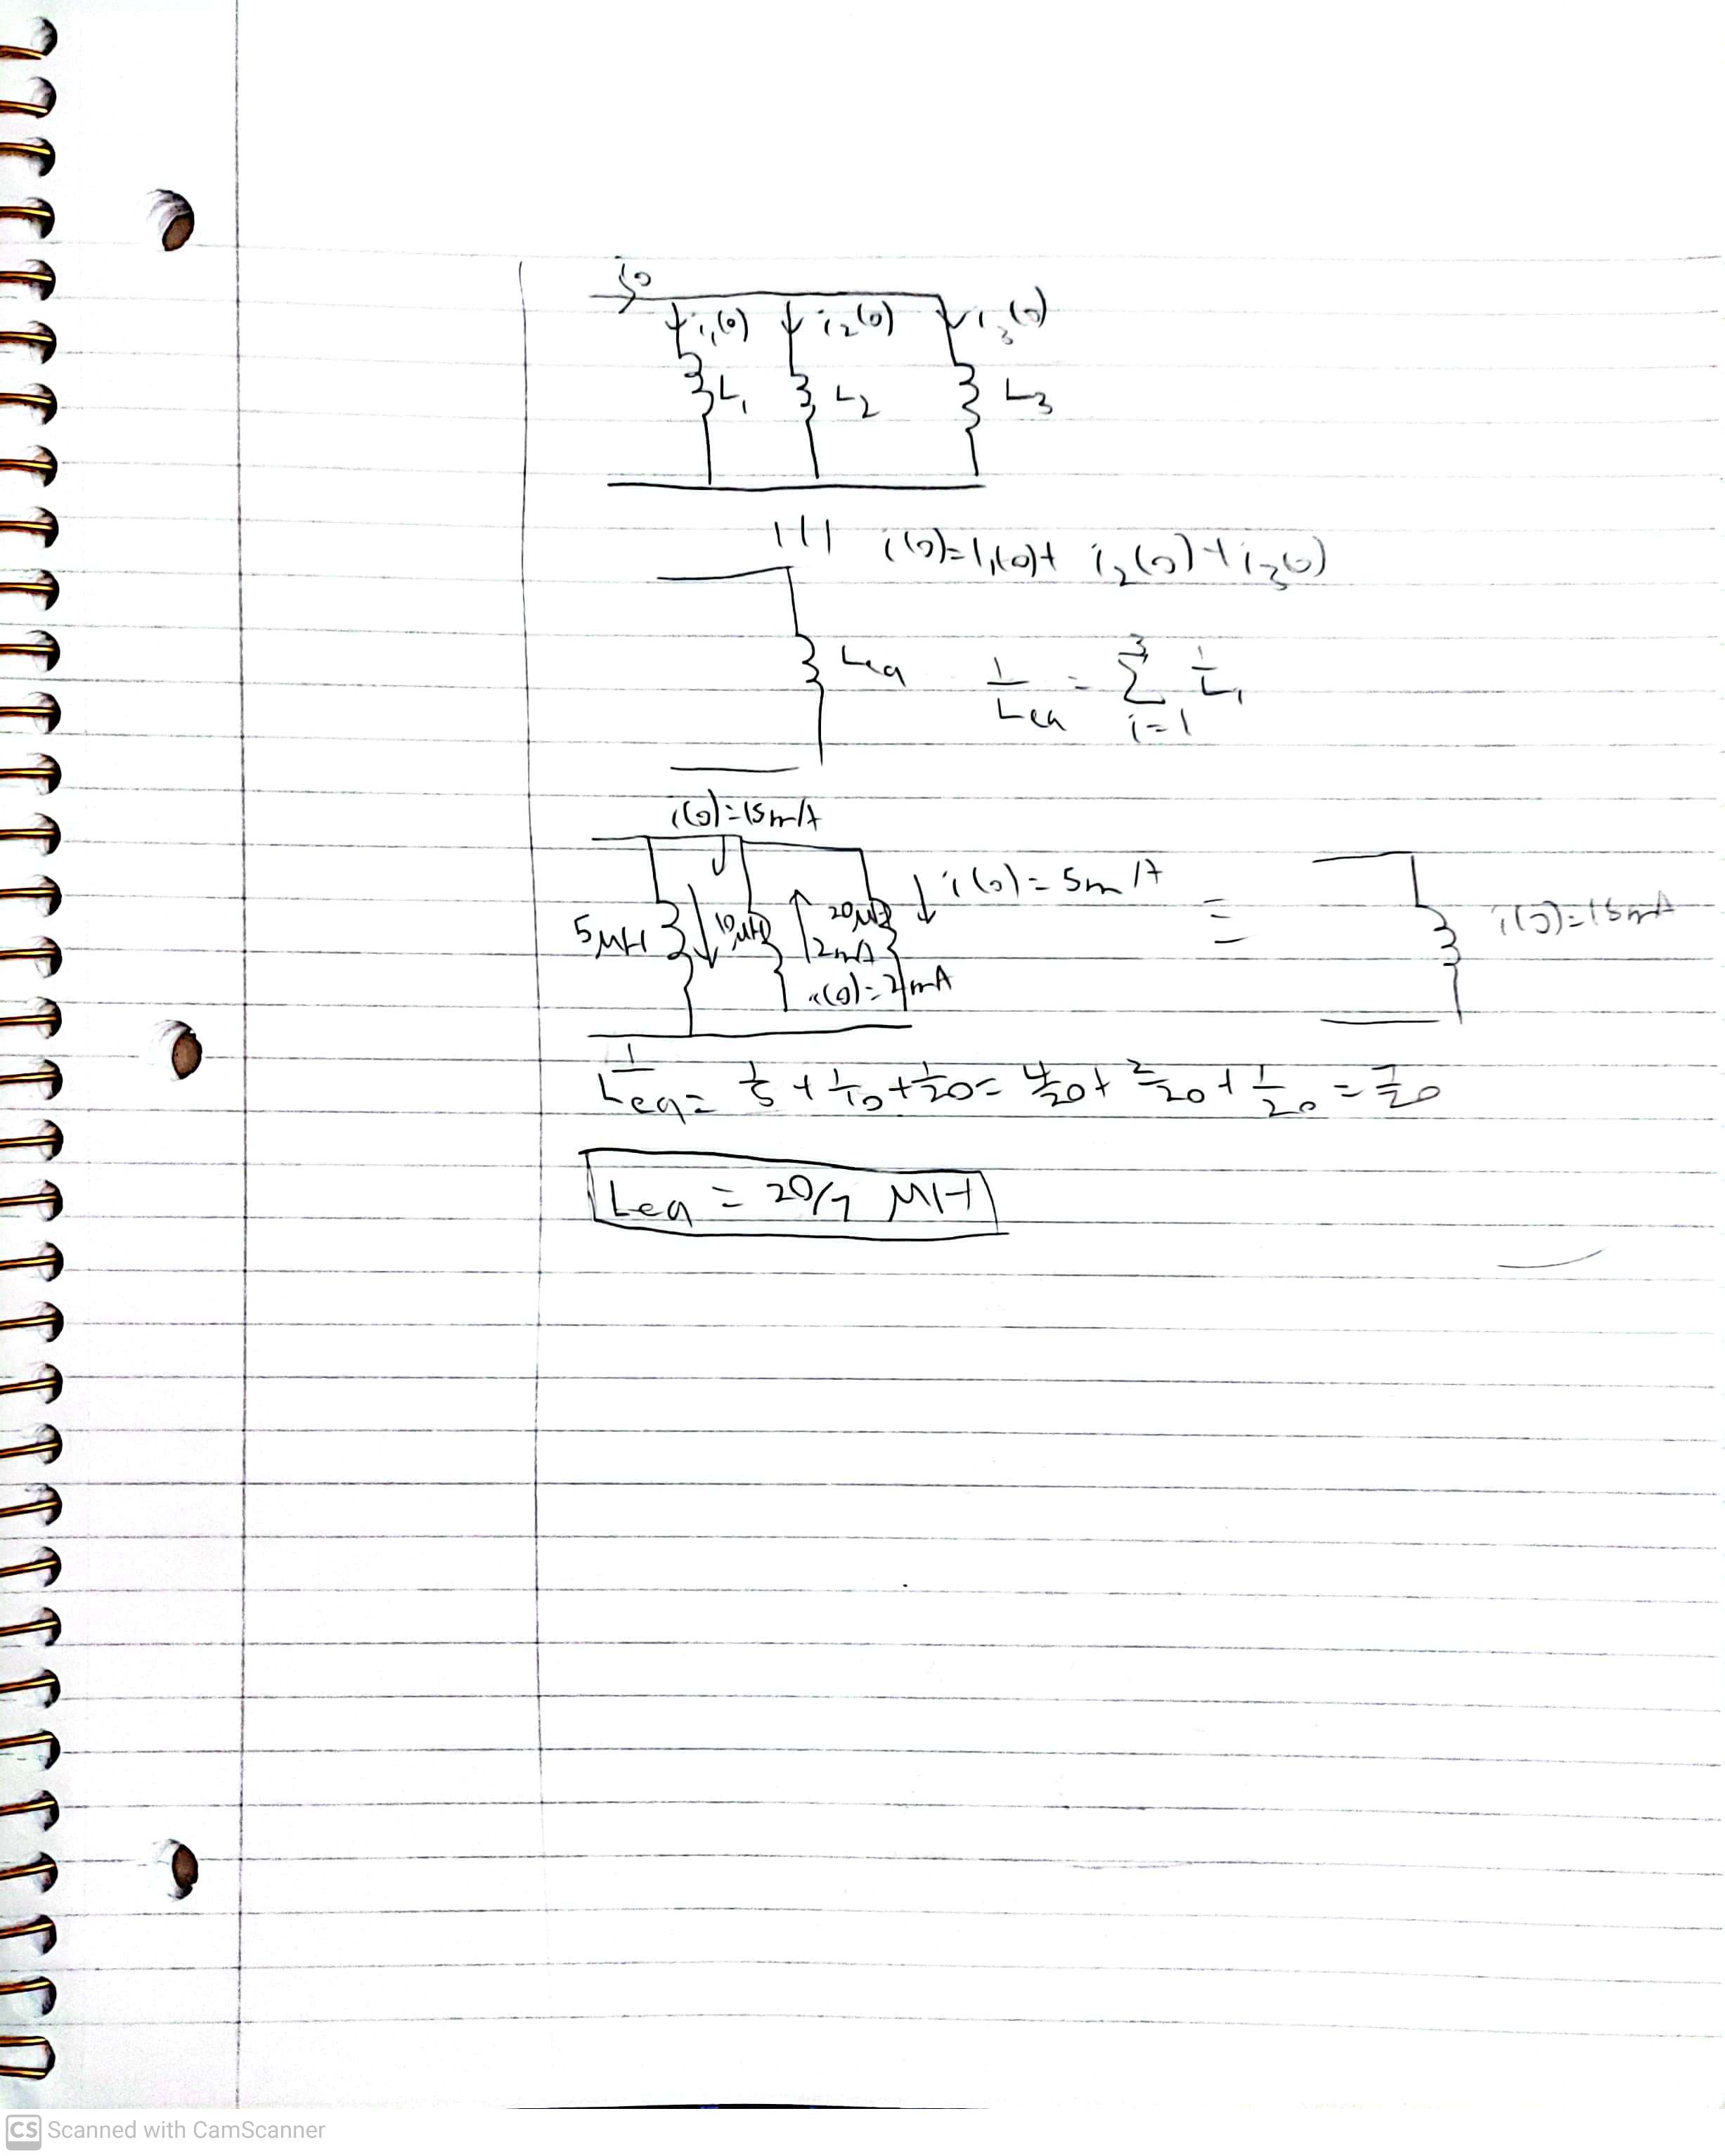 i₁(0) i₂(0) i₃(0)
L₁ L₂ L₃
i(0)=i₁(0)+ i₂(0)+i₃(0)
Leq 1/Leq = 3Σi=1 1/Li
i(0)=15mA
i(0)=5mA ≡
5μH 10μH 20μH i(0)=15mA
2mA
i(0)=2mA
1/Leq= 1/5 + 1/10 + 1/20 = 4/20 + 2/20 + 1/20 = 7/20
Leq = 20/7 μH
CS Scanned with CamScanner